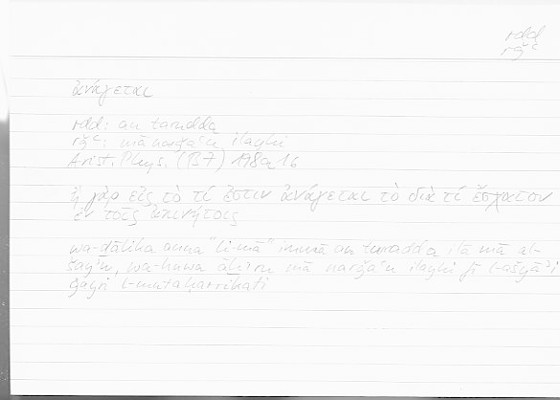 rdd
rǧʿ
ἀνάγεται
rdd: an taradda
rǧʿ: mā narǧaʿu ilayhi
Arist. Phys. (B7) 198a16
ἢ γὰρ εἰς τὸ τί ἐστιν ἀνάγεται τὸ διὰ τί ἔσχατον
ἐν τοῖς ἀκινήτοις
wa-ḏālika anna "li-mā" immā an turadda ilā mā al-
šayʾu, wa-huwa āḫiru mā narǧaʿu ilayhi fī l-ašyāʾi
ġayri l-mutaḥarrikati